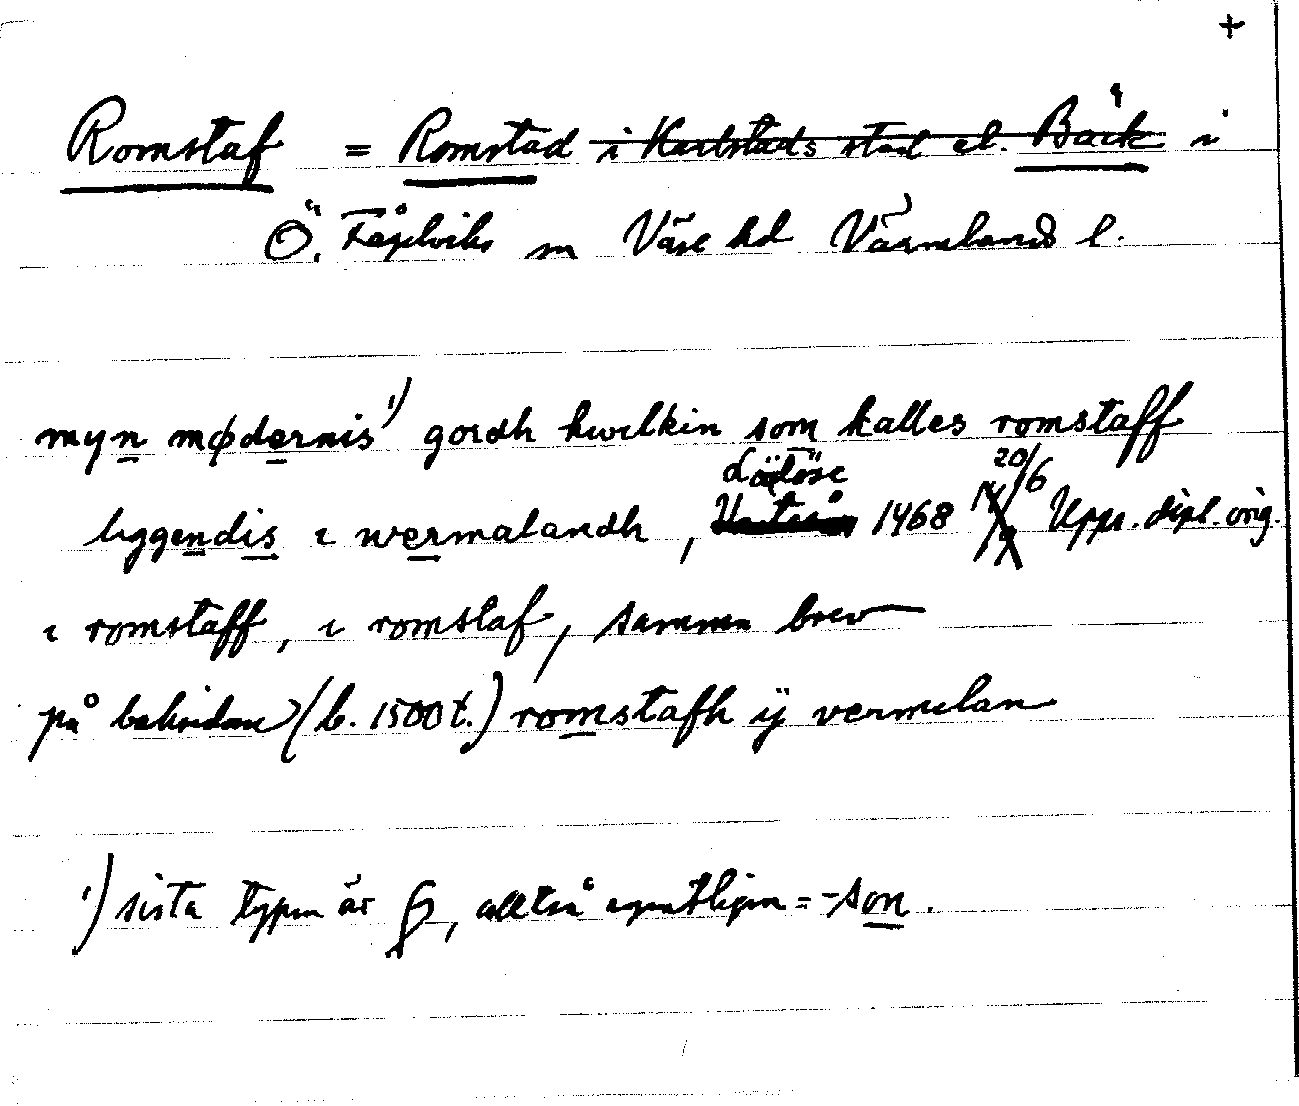 +
Romstaf = Romstad i Karlstads stad el. Bäck i
Ö. Fågelviks sn Väse hd Värmlands l.
myn mødernis ¹) gordh hwilkin som kalles romstaff
liggendis i wermalandh, Lödöse 1468 20/6 Upps. dipl. orig.
i romstaff, i romstaf, samma brev
på baksidan (b. 1500 t.) romstafh ÿ vermelan
¹) sista typen är , alltså egentligen = -son.